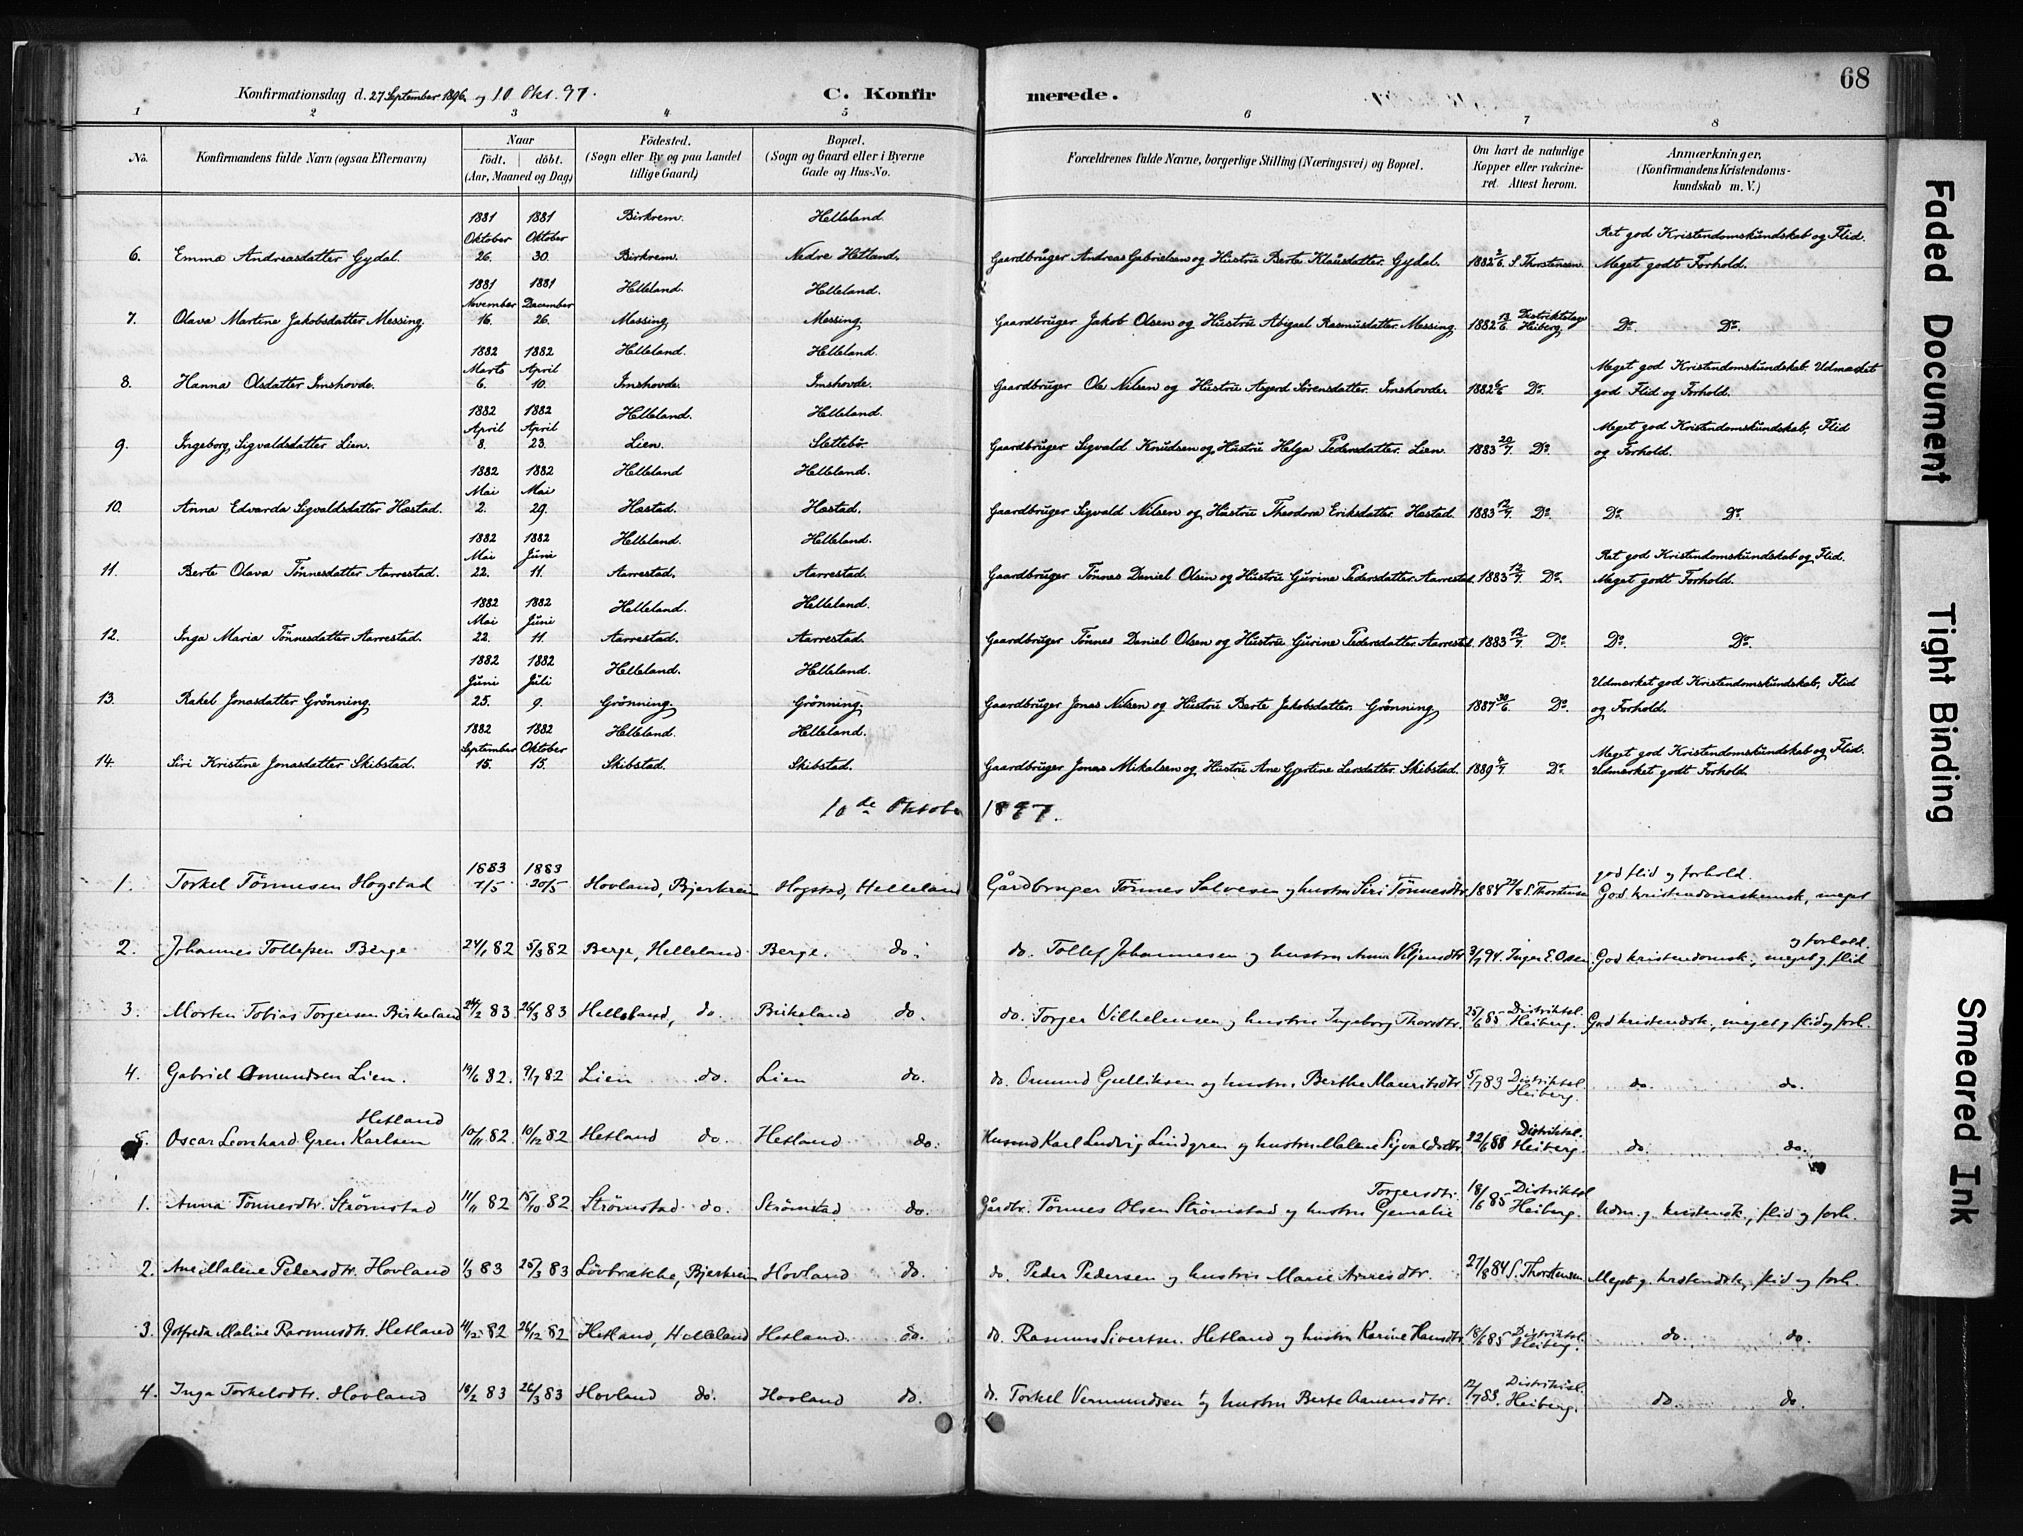 68
Konfirmationsdag d. 27 September 1896 og 10 Okt. 97.
C. Konfirmerede.
1 2 3 4 5 6 7 8
No.
Konfirmandens fulde Navn (ogsaa Efternavn)
Naar
födt. döbt.
(Aar, Maaned og Dag)
Födested.
(Sogn eller By og paa Landet
tillige Gaard)
Bopæl.
(Sogn og Gaard eller i Byerne
Gade og Hus-No.
Forældrenes fulde Navne, borgerlige Stilling (Næringsvei) og Bopæl.
Om havt de naturlige
Kopper eller vakcine-
ret. Attest herom.
Anmærkninger.
(Konfirmandens Kristendoms-
kundskab m. V.)
1881 1881 Birkrem. Helleland.
Oktober Oktober Ret god Kristendomskundskab og Flid.
6. Emma Andreasdatter Gydal. 26. 30. Birkrem. Nedre Hetland. Gaardbruger Andreas Gabrielsen og Hustru Berte Klausdatter Gydal. 1882 2/6 S. Thorstensen. Meget godt Forhold.
1881 1881 Helleland. Helleland.
November December Distriktslæge
7. Olava Martine Jakobsdatter Messing. 16. 26. Messing Messing Gaardbruger Jakob Olsen og Hustru Abigael Rasmusdatter Messing 1882 13/6 Heiberg. Do. Do.
1882 1882 Helleland. Helleland.
Marts April Meget god Kristendomskundskab. Udmærket
8. Hanna Olsdatter Imshovde. 6. 10. Imshovde. Imshovde. Gaardbruger Ole Nilsen og Hustru Asgerd Sørensdatter Imshovde. 1882 6/6 Do. god Flid og Forhold.
1882 1882 Helleland. Helleland.
April April Meget god Kristendomskundskab, Flid
9. Ingeborg Sigvaldsdatter Lien. 8. 23. Lien. Slettebø. Gaardbruger Sigvald Knudsen og Hustru Helga Pedersdatter Lien. 1883 20/7 Do. og Forhold.
1882 1882 Helleland Helleland.
Mai Mai
10. Anna Edvarda Sigvaldsdatter Hæstad. 2. 29. Hæstad. Hæstad. Gaardbruger Sigvald Nilsen og Hustru Theodora Eriksdatter Hæstad. 1883 12/7 Do. Do. Do.
1882 1882 Helleland. Helleland.
Mai Juni Ret god Kristendomskundskab og Flid.
11. Berte Olava Tönnesdatter Aarrestad. 22. 11. Aarrestad. Aarrestad. Gaardbruger Tönnes Daniel Olsen og Hustru Gurine Pedersdatter Aarrestad. 1883 12/7 Do. Meget godt Forhold.
1882 1882 Helleland. Helleland.
Mai Juni
12. Inga Maria Tönnesdatter Aarrestad. 22. 11. Aarrestad. Aarrestad. Gaardbruger Tönnes Daniel Olsen og Hustru Gurine Pedersdatter Aarrestad. 1883 12/7 Do. Do. Do.
1882 1882 Helleland. Helleland.
Juni Juli Udmærket god Kristendomskundskab, Flid
13. Rakel Jonasdatter Grönning 25. 9. Grönning. Grönning. Gaardbruger Jonas Nilsen og Hustru Berte Jakobsdatter Grönning 1887 30/6 Do. og Forhold.
1882 1882 Helleland. Helleland.
September Oktober Meget god Kristendomskundskab og Flid.
14. Siri Kristine Jonasdatter Skibstad. 15. 15. Skibstad. Skibstad. Gaardbruger Jonas Mikalsen og Hustru Ane Gjertine Larsdatter Skibstad. 1889 4/7 Do. Udmærket godt Forhold.
10de Oktober 1897.
1883 1883 god flid og forhold.
1. Torkel Tönnesen Hogstad 7/5 20/5 Hovland, Bjerkreim Hogstad, Helleland Gårdbruger Tönnes Salvesen og hustru Siri Tönnesdtr. 1884 22/8 S. Thorstensen God kristendomskunsk, meget
og forhold.
2. Johannes Tollefsen Berge 24/1 82 5/3 82 Berge, Helleland Berge. do. do. Tollef Johannesen og hustru Anna Viljemsdtr 3/7 94. Inger E. Olsen God kristendomsk, meget g. flid
3. Morten Tobias Torgersen Birkeland 24/2 83 26/3 83 Helleland, do. Birkeland do. do. Torger Vilhelmsen og hustru Ingeborg Thorsdtr. 25/6 85 Distriktsl. Heiberg. God kristendsk, meget g. flid og forh.
4. Gabriel Omundsen Lien. 19/6 82. 9/7 82 Lien do. Lien do. do. Omund Gulliksen og hustru Berthe Mauritsdtr 5/7 83 Distriktsl. Heiberg. do. do.
Hetland
5. Oscar Leonhard Gren Karlsen 10/11 82. 10/12 82 Hetland do. Hetland do. Husmd Karl Ludvig Lindgren og hustru Malene Sigvaldsdtr. 22/6 88 Distriktsl. Heiberg. do. do.
Torgersdtr.
1. Anna Tönnesdtr. Strömstad 11/11 82 15/10 82 Strömstad do. Strömstad do. Gårdbr. Tönnes Olsen Strömstad og hustru Gemalie 18/6 85 Distriktsl. Heiberg. Udm. g. kristensk., flid og forh.
2. Ane Malene Pedersdtr. Hovland 1/3 83 25/3 83 Lövbrække, Bjerkreim Hovland do. do. Peder Pedersen og hustru Marie Annesdtr. 27/8 84 S. Thorstensen Meget g. kristendsk, flid og forh.
3. Gotfreda Maline Rasmusdtr. Hetland 11/12 82 26/12 82 Hetland, Helleland Hetland. do. do. Rasmus Sivertsen Hetland og hustru Karine Hansdtr. 18/6 85 Distriktsl. Heiberg. do. do.
4. Inga Torkelsdtr. Hovland 18/2 83 26/3 83 Hovland do. Hovland do. do. Torkel Vermundsen og hustru Berte Aanensdtr. 12/7 83. Distriktsl. Heiberg. do. do.
Faded Document
Tight Binding
Smeared Ink